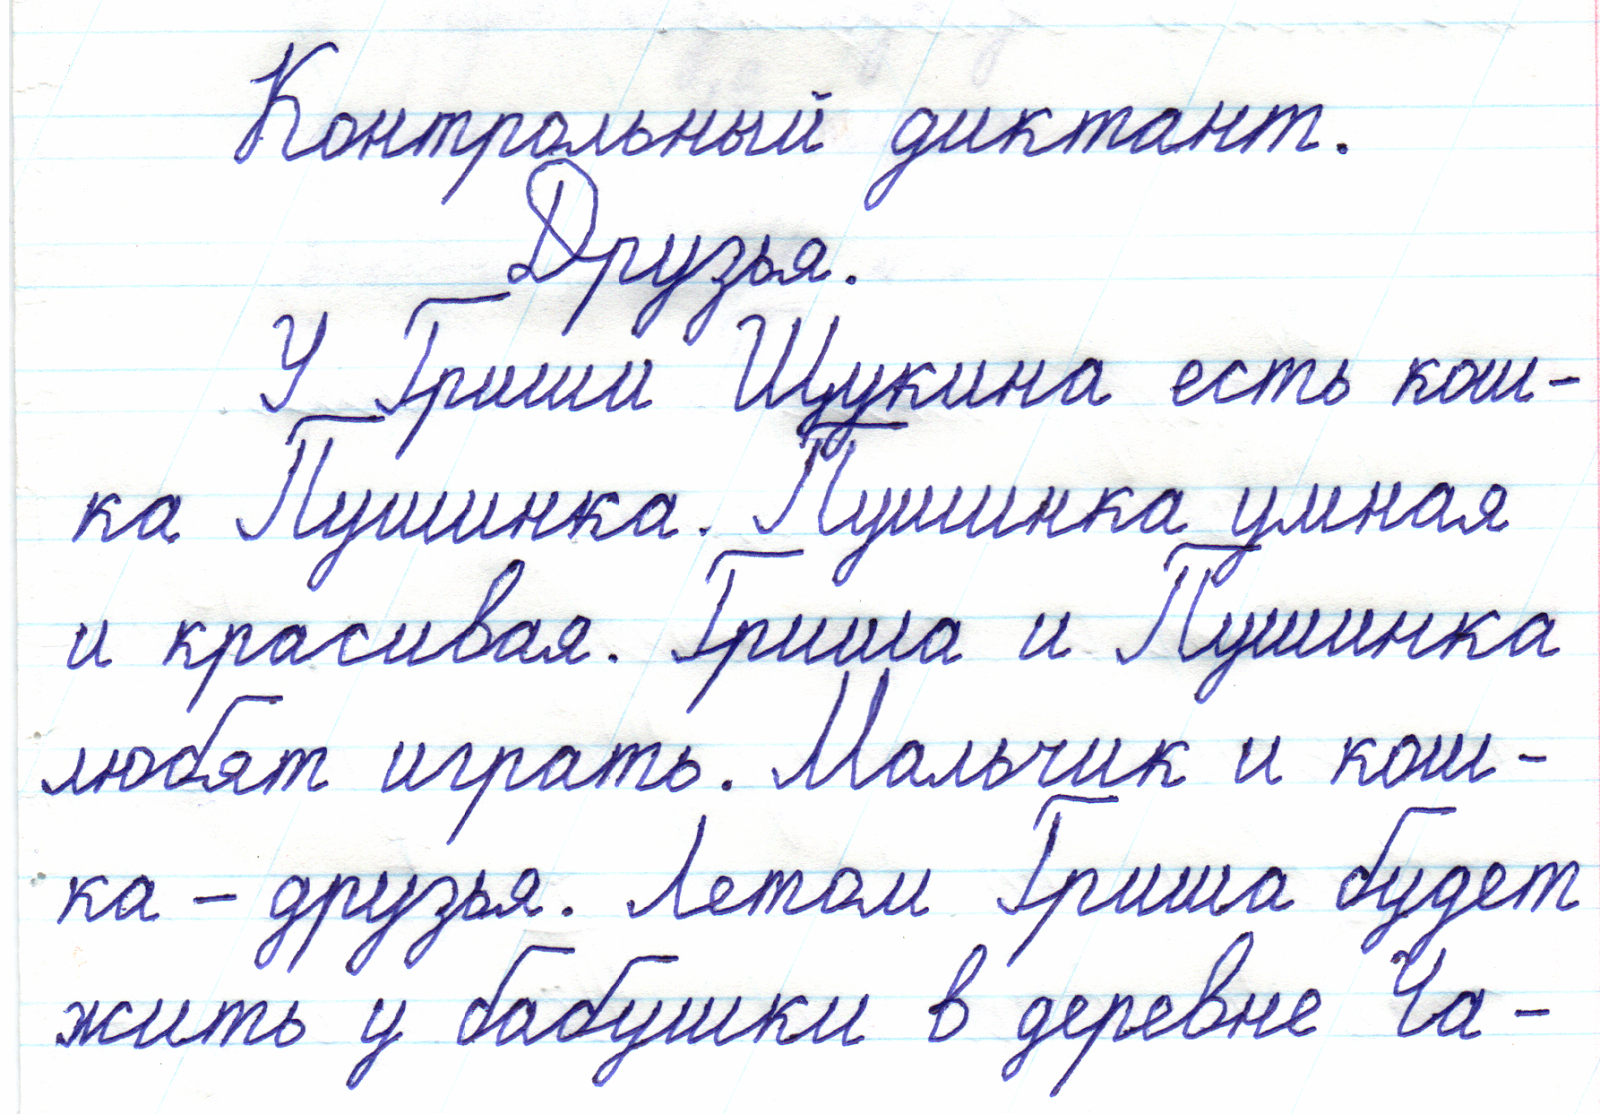 Контрольный диктант.
Друзья.
У Гриши Щукина есть кош-
ка Пушинка. Пушинка умная
и красивая. Гриша и Пушинка
любят играть. Мальчик и кош-
ка – друзья. Летом Гриша будет
жить у бабушки в деревне Ча-